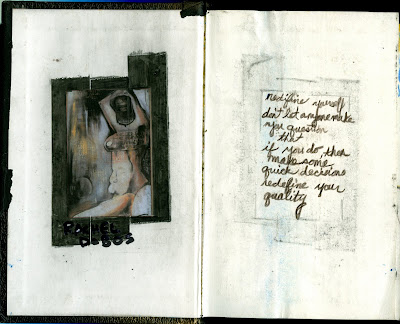 RACHEL
DEBOS
redifine yourself
don't let anyone make
you question
that
if you do then
make some
quick decisions
redefine your
quality